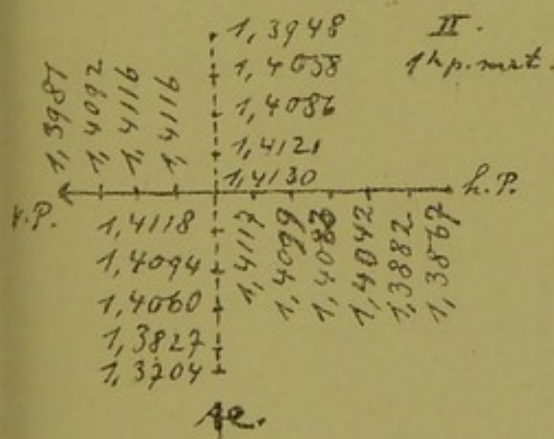 II.
1 hp. mat.
1,3948
1,4038
1,4086
1,4121
1,4130
1,3981
1,4092
1,4116
1,4116
v.P.
h.P.
1,4118
1,4094
1,4060
1,3827
1,3704
1,4117
1,4099
1,4083
1,4042
1,3882
1,3867
Ae.